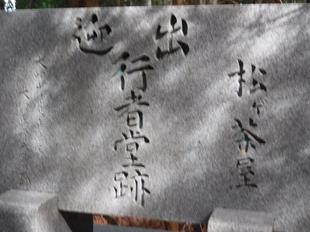 松ヶ茶屋
出迎
行者堂跡